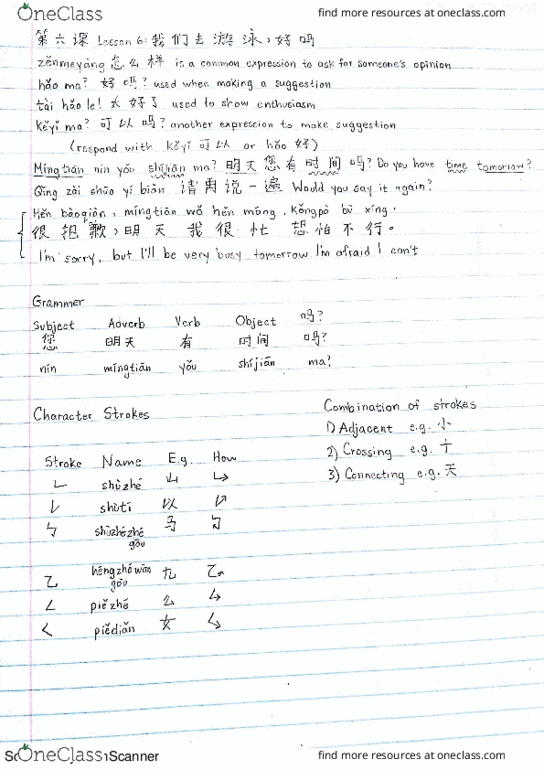 OneClass
find more resources at oneclass.com
第六课 Lesson 6: 我们去游泳, 好吗
zěnmeyàng 怎么样 is a common expression to ask for someone's opinion
hǎo ma? 好吗? used when making a suggestion
tài hǎo le! 太好了 used to show enthusiasm
kěyǐ ma? 可以吗? another expression to make suggestion
(respond with kěyǐ 可以 or hǎo 好)
Míngtiān nín yǒu shíjiān ma? 明天您有时间吗? Do you have time tomorrow?
Qǐng zài shuō yí biàn 请再说一遍 Would you say it again?
Hěn bàoqiàn, míngtiān wǒ hěn máng, kǒngpà bù xíng.
很抱歉, 明天我很忙 恐怕不行。
I'm sorry, but I'll be very busy tomorrow I'm afraid I can't
Grammer
Subject Adverb Verb Object 吗?
您 明天 有 时间 吗?
nín míngtiān yǒu shíjiān ma?
Character Strokes
Combination of strokes
1) Adjacent e.g. 小
2) Crossing e.g. 十
3) Connecting e.g. 天
Stroke Name E.g. How
shùzhé 山
shùtí 以
shùzhézhé gōu 马
héngzhéwān gōu 九
piězhé 么
piědiǎn 女
OneClass
Scanner
find more resources at oneclass.com